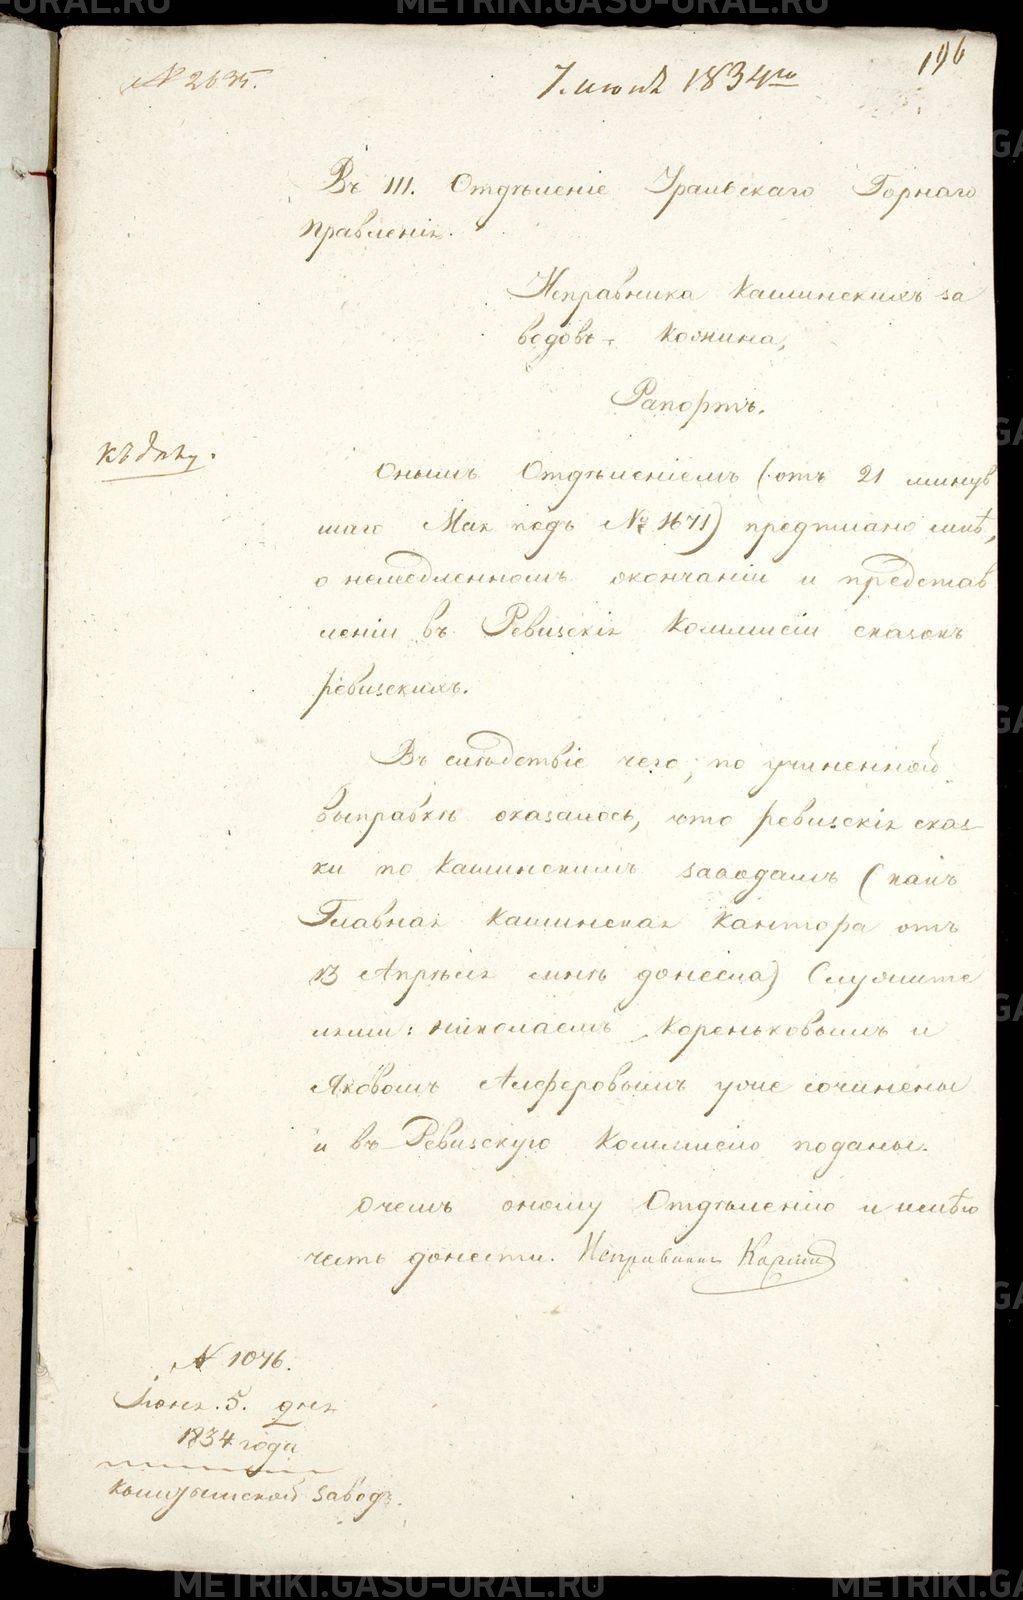 № 2635.
7. июня 1834го
196
Въ III. Отдѣленіе Уральскаго Горнаго
Правленія.
Исправника Кашинскихъ за
водовъ
Рапортъ.
Къ дѣлу.
Онымъ Отдѣленіемъ (отъ 21 минув
шаго Мая подъ № 1671) предписано мнѣ,
о немедленномъ окончаніи и представ
леніи въ Ревизскія Коммисіи сказокъ
ревизскихъ.
Въ слѣдствіе чего, по учиненной
выправкѣ оказалось, что ревизскія сказ-
ки по Кашинскимъ заводамъ (какъ
Главная Кашинская Кантора отъ
Апрѣля мнѣ донесла) Служите
лями: Николаемъ Кореньковымъ и
Яковомъ Алферовымъ уже сочинены
и въ Ревизскую Коммисію поданы.
О чемъ оному Отдѣленію и имѣю
честь донести. Исправникъ
№ 1046.
Іюня. 5. дня
1834 года
завод.
METRIKI.GASU-URAL.RU